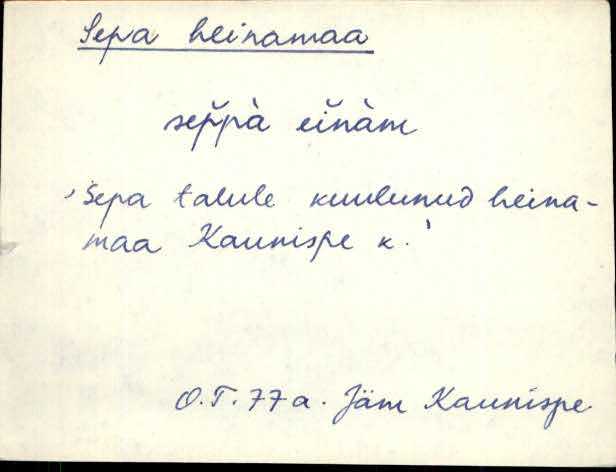 Sepa heinamaa
sep̆pà eĭnàm
'Sepa talule kuulunud heina-
maa Kaunispe k.'
O.T. 77a. Jäm Kaunispe